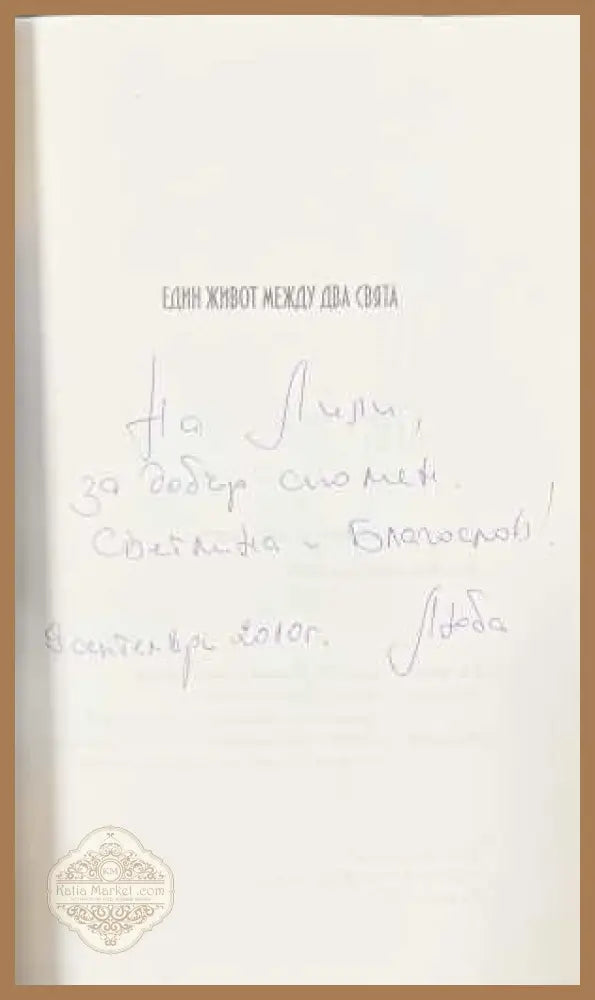 ЕДИН ЖИВОТ МЕЖДУ ДВА СВЯТА
На Лили,
за добър спомен.
Светлина и Благослов!
септември 2010г. Люба
KM
Katia Market .com